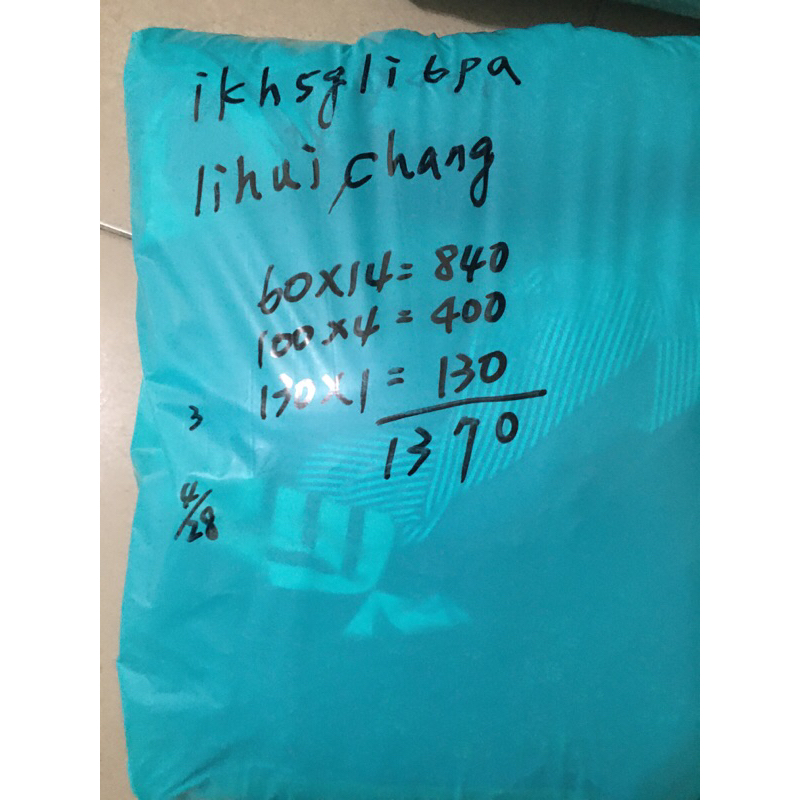 ikh5gli6pa
lihui,chang
60x14=840
100x4=400
130x1=130
1370
3
4/28